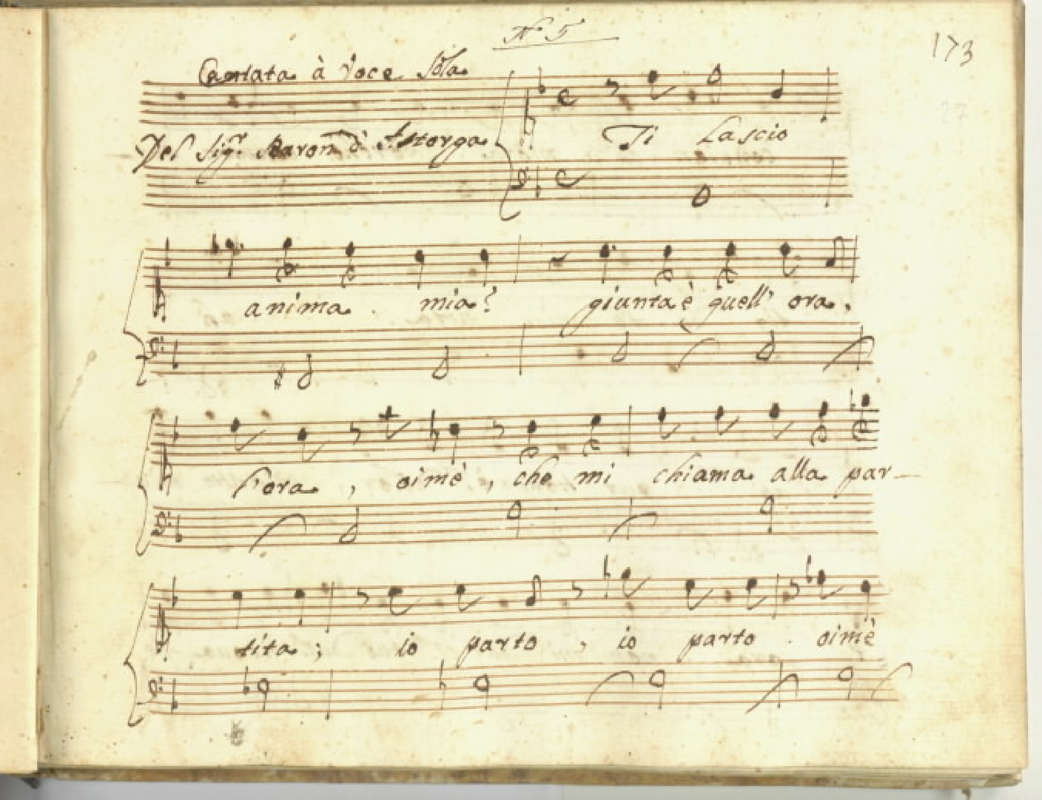 No 5
173
Cantata à Voce Sola
Del Sigr. Baron d'Astorga
Ti Lascio
anima mia? giunta è quell' ora,
l'ora, oimè, che mi chiama alla par-
tita; io parto, io parto oimè